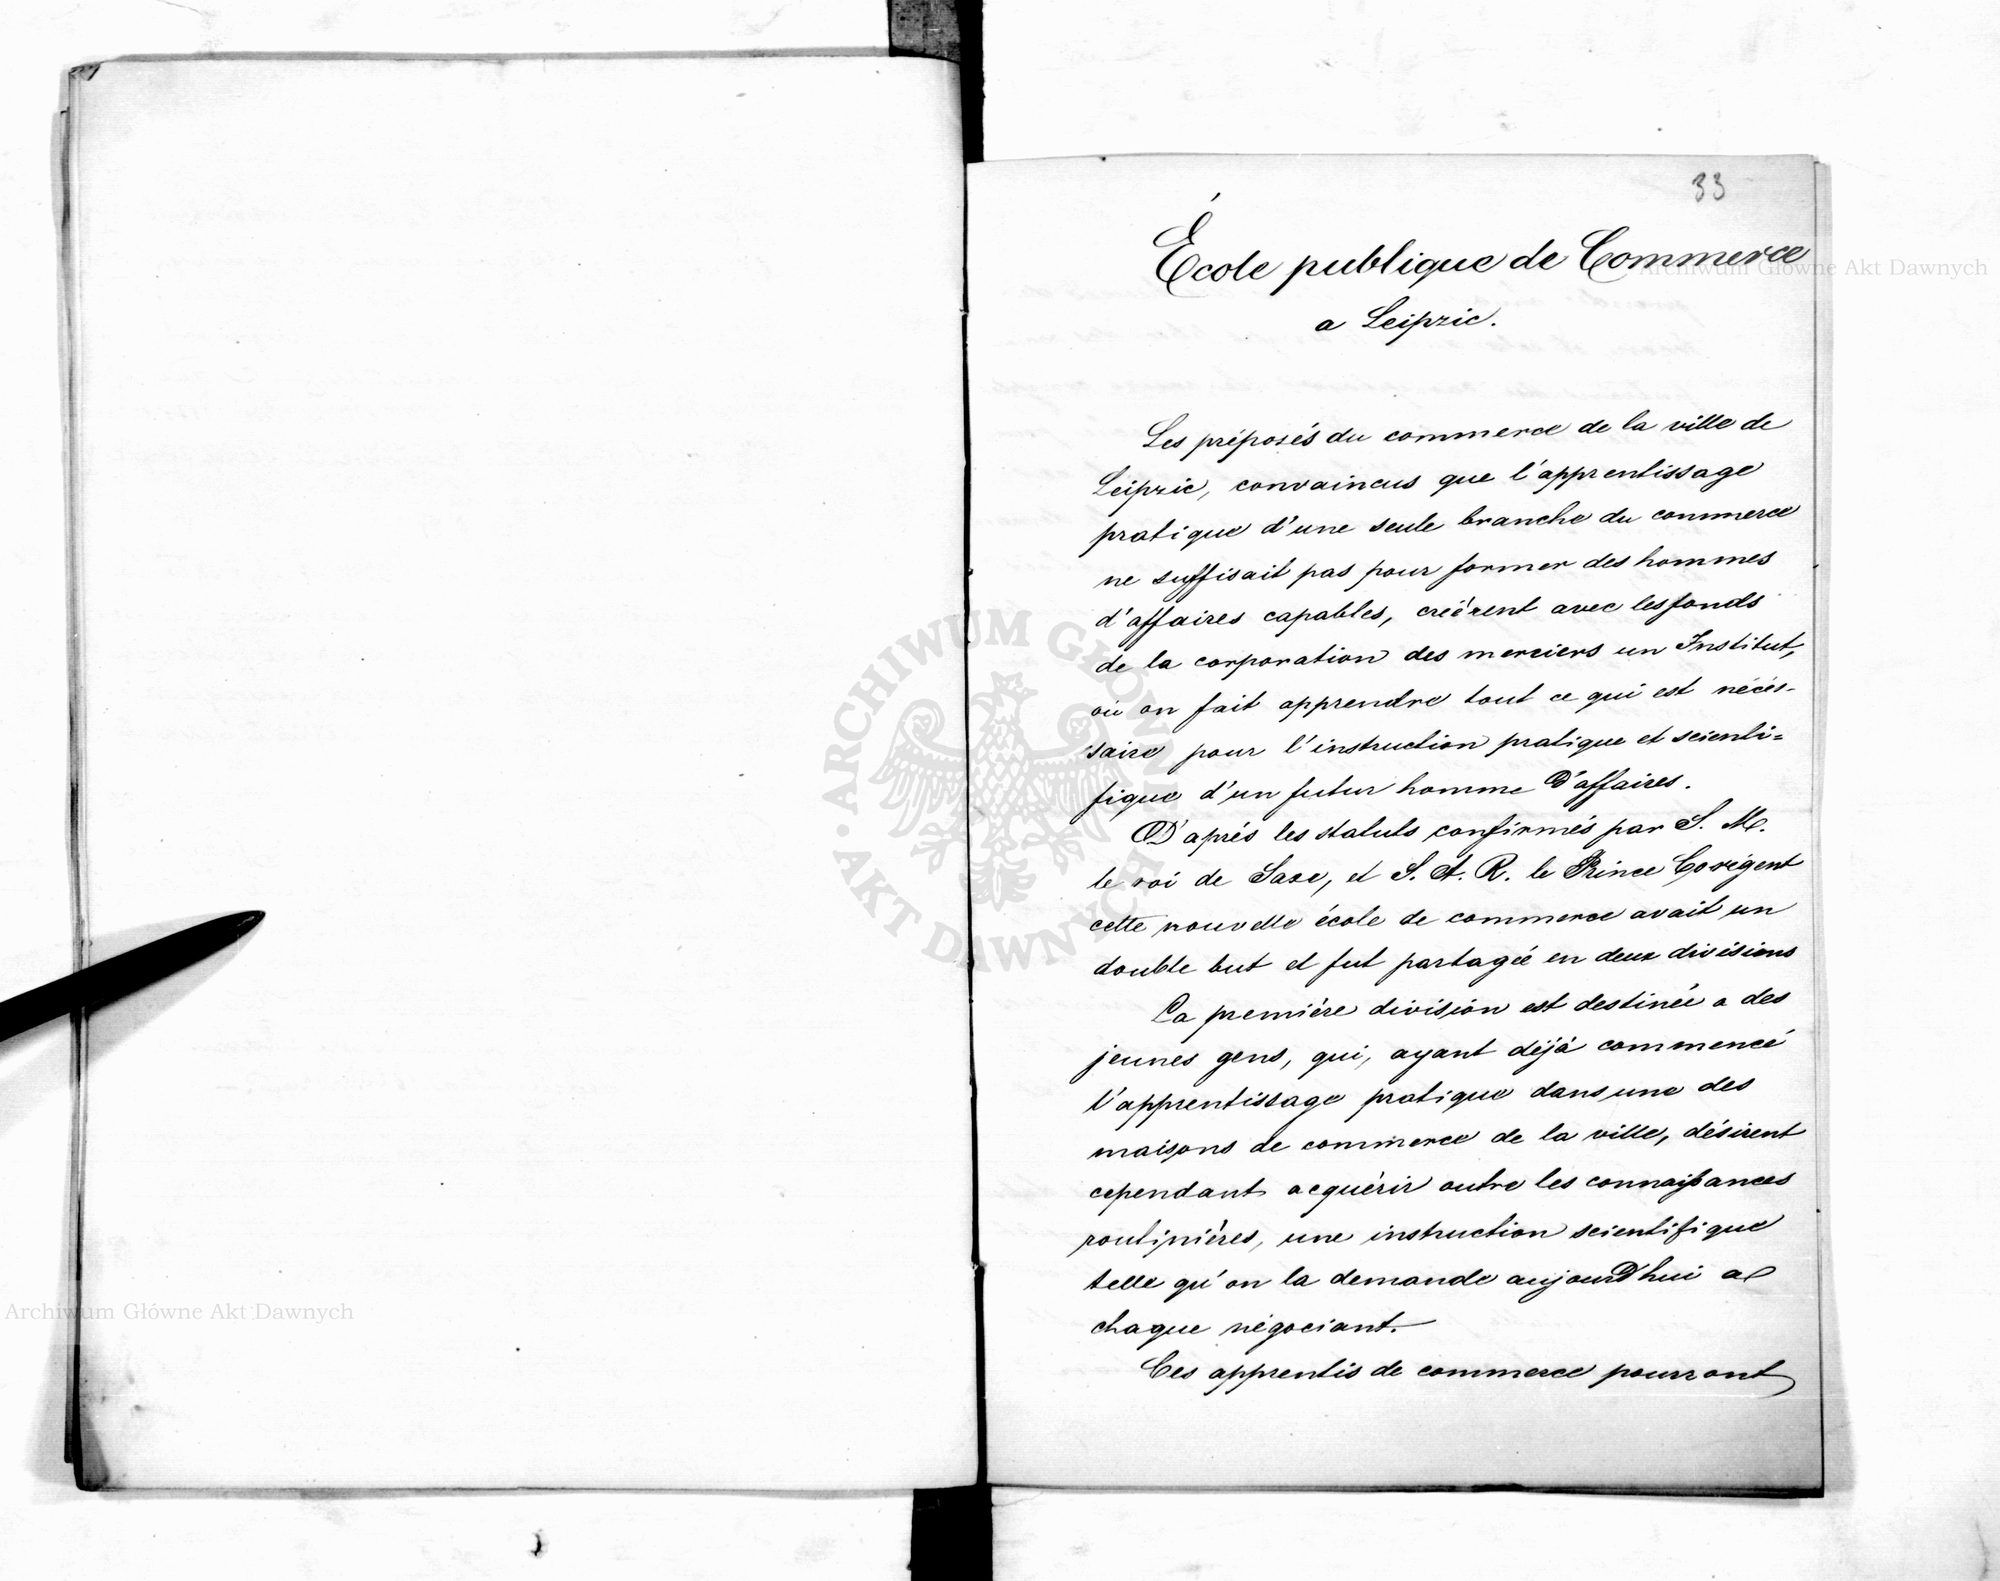 33
École publique de Commerce
a Leipzic.
Les préposés du commerce de la ville de
Leipzic, convaincus que l'apprentissage
pratique d'une seule branche du commerce
ne suffisait pas pour former des hommes
d'affaires capables, créèrent avec les fonds
de la corporation des merciers un Institut,
où on fait apprendre tout ce qui est néces-
saire pour l'instruction pratique et scienti=
fique d'un futur homme D'affaires.
D'après les statuts confirmés par S. M.
le roi de Saxe, et S. A. R. le Prince Corégent
cette nouvelle école de commerce avait un
double but et fut partagée en deux divisions
La première division est destinée a des
jeunes gens, qui, ayant déjà commencé
l'apprentissage pratique dans une des
maisons de commerce de la ville, désirent
cependant acquérir outre les connaissances
routinières, une instruction scientifique
telle qu'on la demande aujourD'hui a
chaque négociant.
Ces apprentis de commerce pourront
Archiwum Główne Akt Dawnych
Archiwum Główne Akt Dawnych
ARCHIWUM GŁÓWNE AKT DAWNYCH